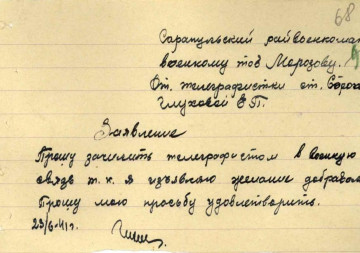 68
Сарапульский райвоенкомат
военкому тов Морозову.
От телеграфистки ст.
Глуховой Е П.
Заявление
Прошу зачислить телеграфистом в военную
связь т. к. я изъявляю желание
Прошу мою просьбу удовлетворить.
23/6-41 г.